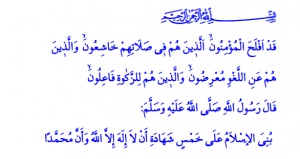 بِسْمِ اللّٰهِ الرَّحْمٰنِ الرَّحِيمِ
قَدْ اَفْلَحَ الْمُؤْمِنُونَۙ اَلَّذِينَ هُمْ فِى صَلَاتِهِمْ خَاشِعُونَۙ وَالَّذِينَ
هُمْ عَنِ اللَّغْوِ مُعْرِضُونَۙ وَالَّذِينَ هُمْ لِلزَّكٰوةِ فَاعِلُونَۙ
قَالَ رَسُولُ اللّٰهِ صَلَّى اللّٰهُ عَلَيْهِ وَسَلَّمَ:
بُنِىَ الْاِسْلَامُ عَلٰى خَمْسٍ شَهَادَةِ اَنْ لَا اِلٰهَ اِلَّا اللّٰهُ وَاَنَّ مُحَمَّدًا